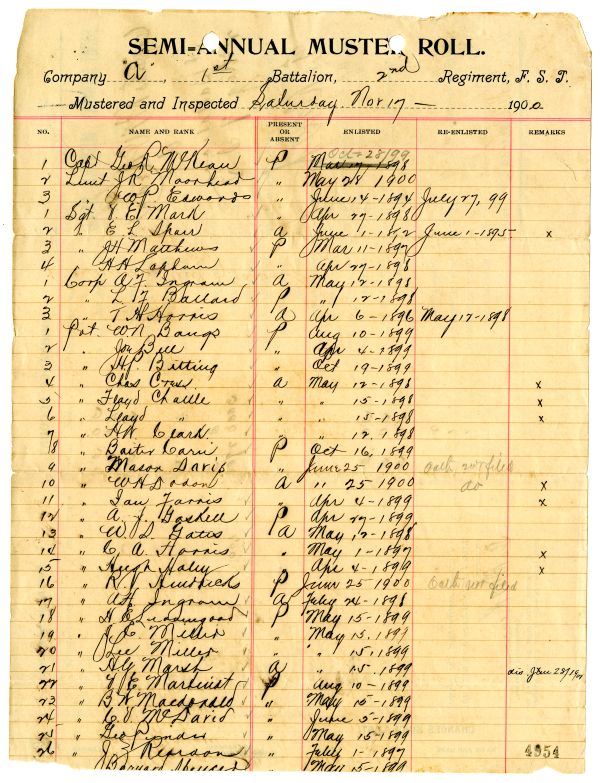 SEMI-ANNUAL MUSTER ROLL.
Company "A", 1st Battalion, 2nd Regiment, F. S. T.
Mustered and Inspected Saturday Nov 17 — 1900
NO. NAME AND RANK PRESENT OR ABSENT ENLISTED RE-ENLISTED REMARKS
Oct 28/99
1 Capt Geo R McKean P Mar 17-1898
2 Lieut J R Moorhead " May 28 1900
3 " W P Edwards " June 14-1894 July 27, 99
1 Sgt. V. E. Mark " Apr 27-1898
2 " E L Sparr a June 1-1892 June 1-1895 x
3 " J H Matthews P Mar 11-1897
4 " H A Lapham " Apr 27-1898
1 Corp A. F. Ingram a May 12-1898
2 " L. F. Ballard P " 12-1898
3 " T H Norris a Apr 6-1896 May 12-1898
1 Pvt. W N Bangs P Aug 10-1899
2 " Jon Bell " Apr 4-1899
3 " H. P. Bitting " Oct 19-1899
4 " Chas Cross a May 12-1898 x
5 " Floyd " 15-1898 x
6 " Lloyd " " 15-1898 x
7 " H W Clark " " 12, 1898
8 " Baxter Carn P Oct 16, 1899
9 " Mason Davis " June 25 1900 Oath not filed
10 " W H Dodson a " 25 1900 do x
11 " Ian Farris " Apr 4-1899 x
12 " A. J. Goshell P Apr 27-1899
13 " W. D. Gates a May 12-1898
14 " C A Harris " May 1-1897 x
15 " Hugh Haley " Apr 4-1899 x
16 " R. V. Hendricks P June 25 1900 Oath not filed
17 " A H Ingram a Feby 24-1898
18 " H E P May 15-1899
19 " J. C. Miller " May 15, 1899
20 " Lee Miller " " 15, 1899
21 " H G Marsh a " 15-1899 dis Jan 28/1901
22 " T E P Aug 10-1899
23 " B H Macdonald " May 15-1899
24 " C. V. McDavid " June 5-1899
25 " Geo " May 15-1899
26 " J. " Feby 1-1897
" " May 15-1899
4954